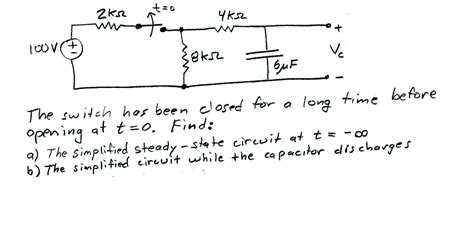 2kΩ t=0 4kΩ
+
100V + 8kΩ Vc
6μF
-
The switch has been closed for a long time before
opening at t=0. Find:
a) The simplified steady-state circuit at t = -∞
b) The simplified circuit while the capacitor discharges